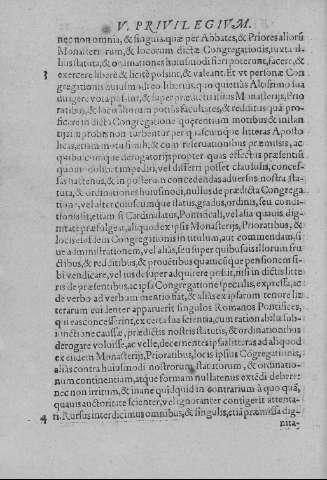 V. PRIVILEGIVM.
nec non omnia, & singula, quæ per Abbates, & Priores alioru
Monasteriorum, & locorum dictæ Congregationis, iuxta il
lius statuta, & ordinationes huiusmodi fieri poterunt, facere, &
3 exercere liberè & licitè possint, & valeant. Et vt personæ Con
gregationis huiusmodi eo liberius, quo quietiùs Altissimo sua
dirigere vota possint, & super prædictis ipsius Monasterijs, Prio
ratibus, & locis illorum potiùs facultates, & redditus quã pro-
ficere in dicta Congregatione quærentium motibus & inilan
tijs in probis non turbentur per quascumque litteras Aposto
licas, etiam motu simili, & cum
quibuscumque derogatorijs propter quas effectus præsentiũ
quomodolibet impediri, vel differri posset clausulis, conces-
sas hactenus, & in posterum concedendas aduersus nostra sta-
tuta, & ordinationes huiusmodi, nullus de prædicta Congrega
tione, vel alter cuiuscumque status, gradus, ordinis, seu condi-
tionis sit, etiam si Cardinalatus, Pontificali, vel alia quauis dig-
nitate præfulgeat, aliquod ex ipsis Monasterijs, Prioratibus, &
locis eiusdem Congregationis in titulum, aut commendam, si
ue administrationem, vel aliàs, seu super quibusuis illorum fru
ctibus, & redditibus, & prouẽtibus quamcumque pensionem si-
bi vendicare, vel ius desuper adquirere possit, nisi in dictis litte
ris de præsentibus, ac ipsa Congregatione specialis, expressa, ac
de verbo ad verbum mentio fiat, & aliàs ex ipsarum tenore lit
terarum euidenter apparerit singulos Romanos Pontifices,
qui eas concesserint, ex certa sua scientia, cum rationabili sub-
iunctione causæ, prædictis nostris statutis, & ordinationibus
derogare voluisse, ac velle, decernentes ipsas litteras ad aliquod
ex eisdem Monasterijs, Prioratibus, locis ipsius Cõgregationis,
aliàs contra huiusmodi nostrorum statutorum, & ordinatio-
num continentiam, atque formam nullatenus extẽdi debere:
nec non irritum, & inane quidquid in contrarium à quo quã,
quauis auctoritate scienter, vel ignoranter contigerit attenta-
4 ri. Rursus interdicimus omnibus, & singulis, etiã præmissa dig-
nita-